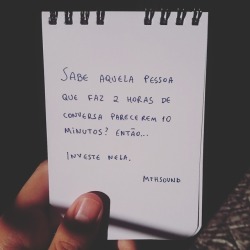 SABE AQUELA PESSOA
QUE FAZ 2 HORAS DE
CONVERSA PARECEREM 10
MINUTOS? ENTÃO...
INVESTE NELA.
MTHSOUND